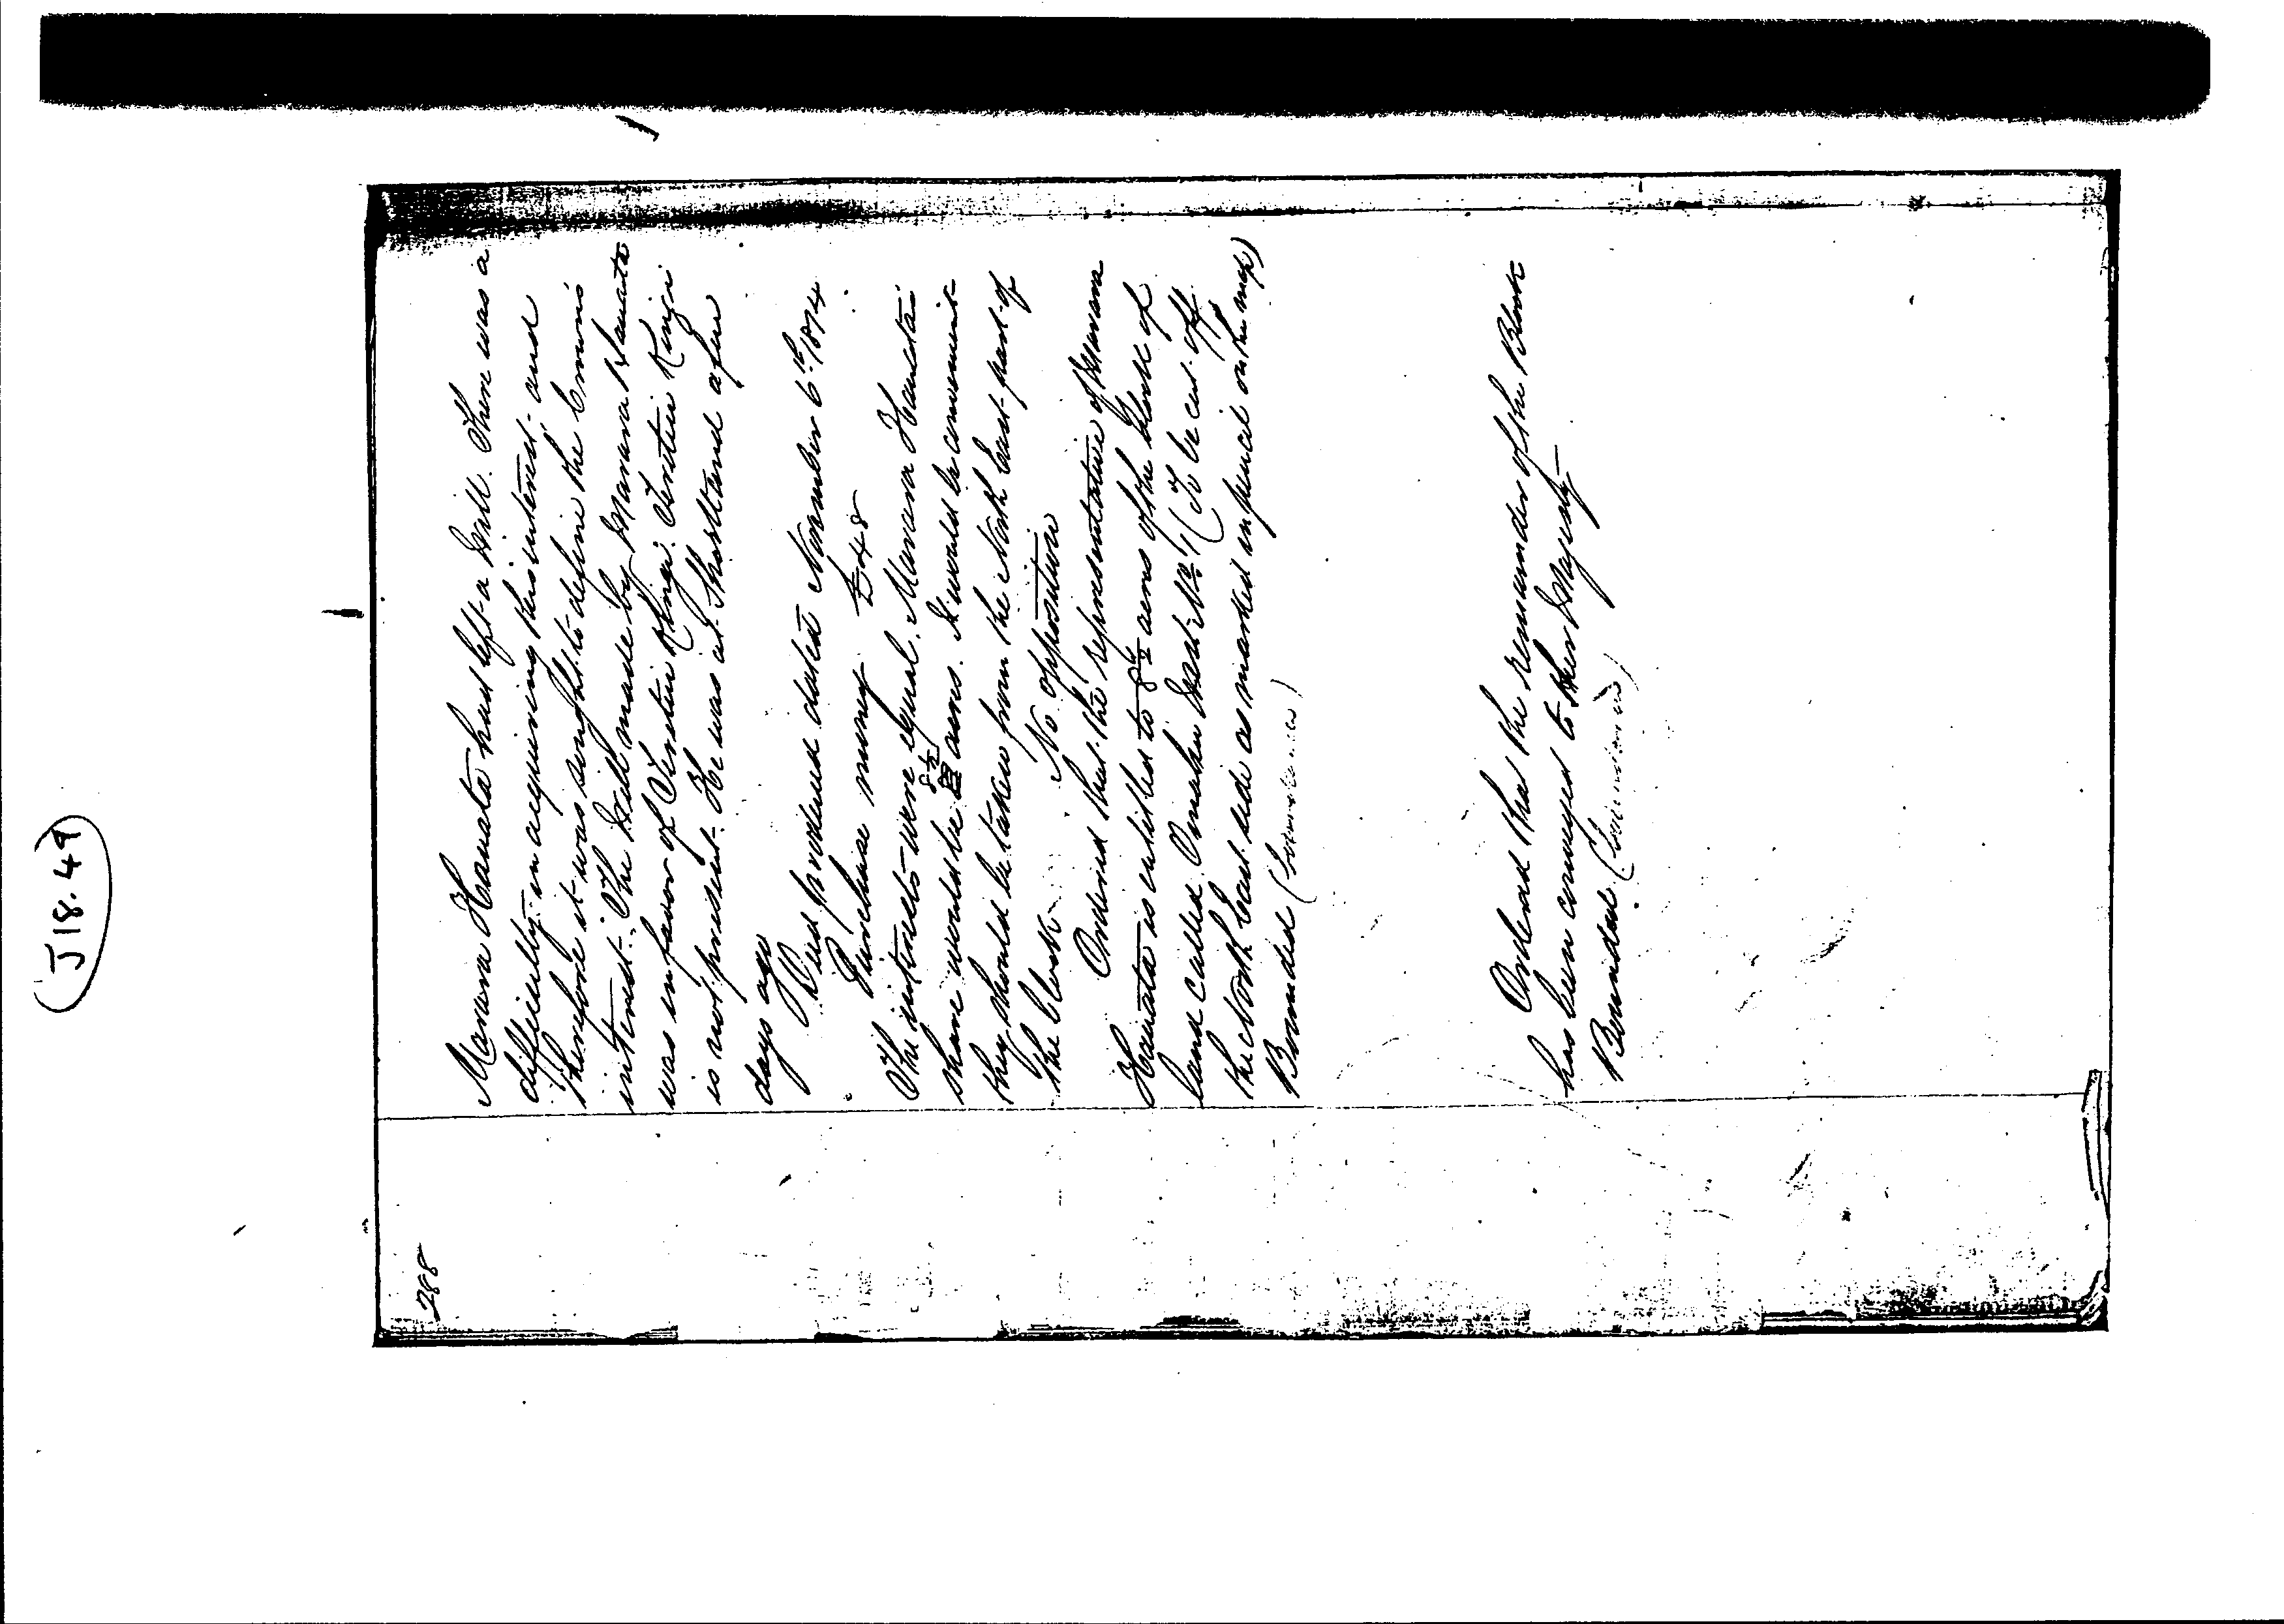 (J18.49)
288
Manana Hauata had left a Will. There was a
difficulty in acquiring his interest and
therefore it was sought to define the Crown's
interest. The Will made by Manana Hauata
was in favor of Teretiu Kingi. Teretiu Kingi
is not present. He was at Shortland a few
days ago
Deed produced dated November 6th 1874
Purchase money £48
The interests were equal. Manana Hauata's
8½
share would be acres. It would be convenient
they should be taken from the North East part of
the block. No opposition
Ordered that the representative of Manana
Hauata is entitled to 8½ acres of the Block of
land called Omahu West No. 1 (To be cut off
the North East side as marked in pencil on the map)
Bounded (boundaries)
Ordered that the remainder of the Block
has been conveyed to Her Majesty
Bounded (boundaries)